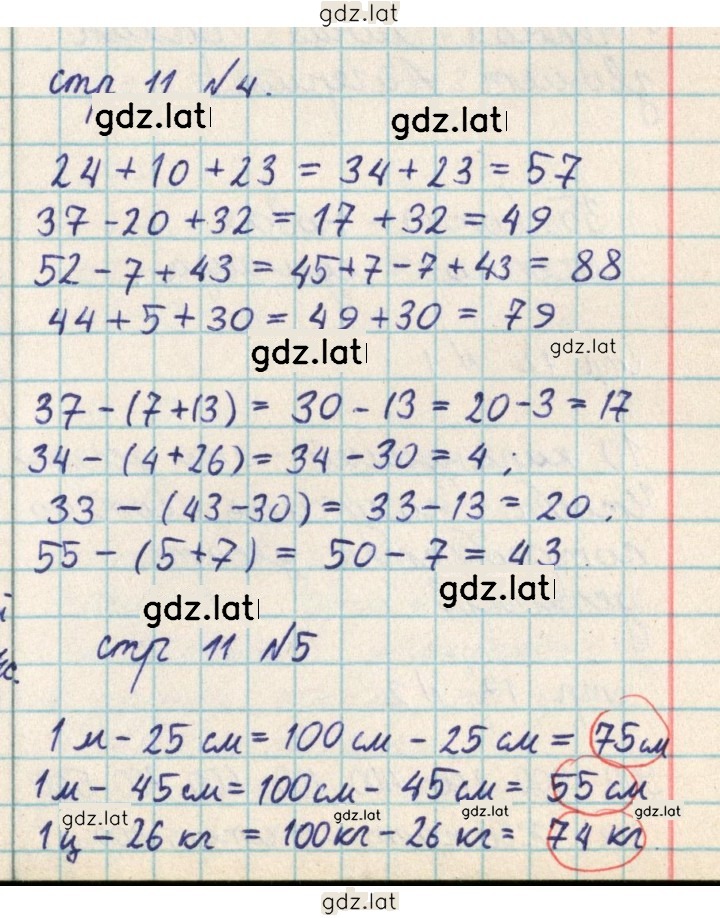 gdz.lat
стр 11 №4.
gdz.lat gdz.lat
24 + 10 + 23 = 34 + 23 = 57
37 - 20 + 32 = 17 + 32 = 49
52 - 7 + 43 = 45 + 7 - 7 + 43 = 88
44 + 5 + 30 = 49 + 30 = 79
gdz.lat gdz.lat
37 - (7 + 13) = 30 - 13 = 20 - 3 = 17
34 - (4 + 26) = 34 - 30 = 4;
33 - (43 - 30) = 33 - 13 = 20;
55 - (5 + 7) = 50 - 7 = 43.
gdz.lat gdz.lat
стр 11 №5
1 м - 25 см = 100 см - 25 см = 75 см
1 м - 45 см = 100 см - 45 см = 55 см
gdz.lat gdz.lat gdz.lat gdz.lat
1 ц - 26 кг = 100 кг - 26 кг = 74 кг.
gdz.lat